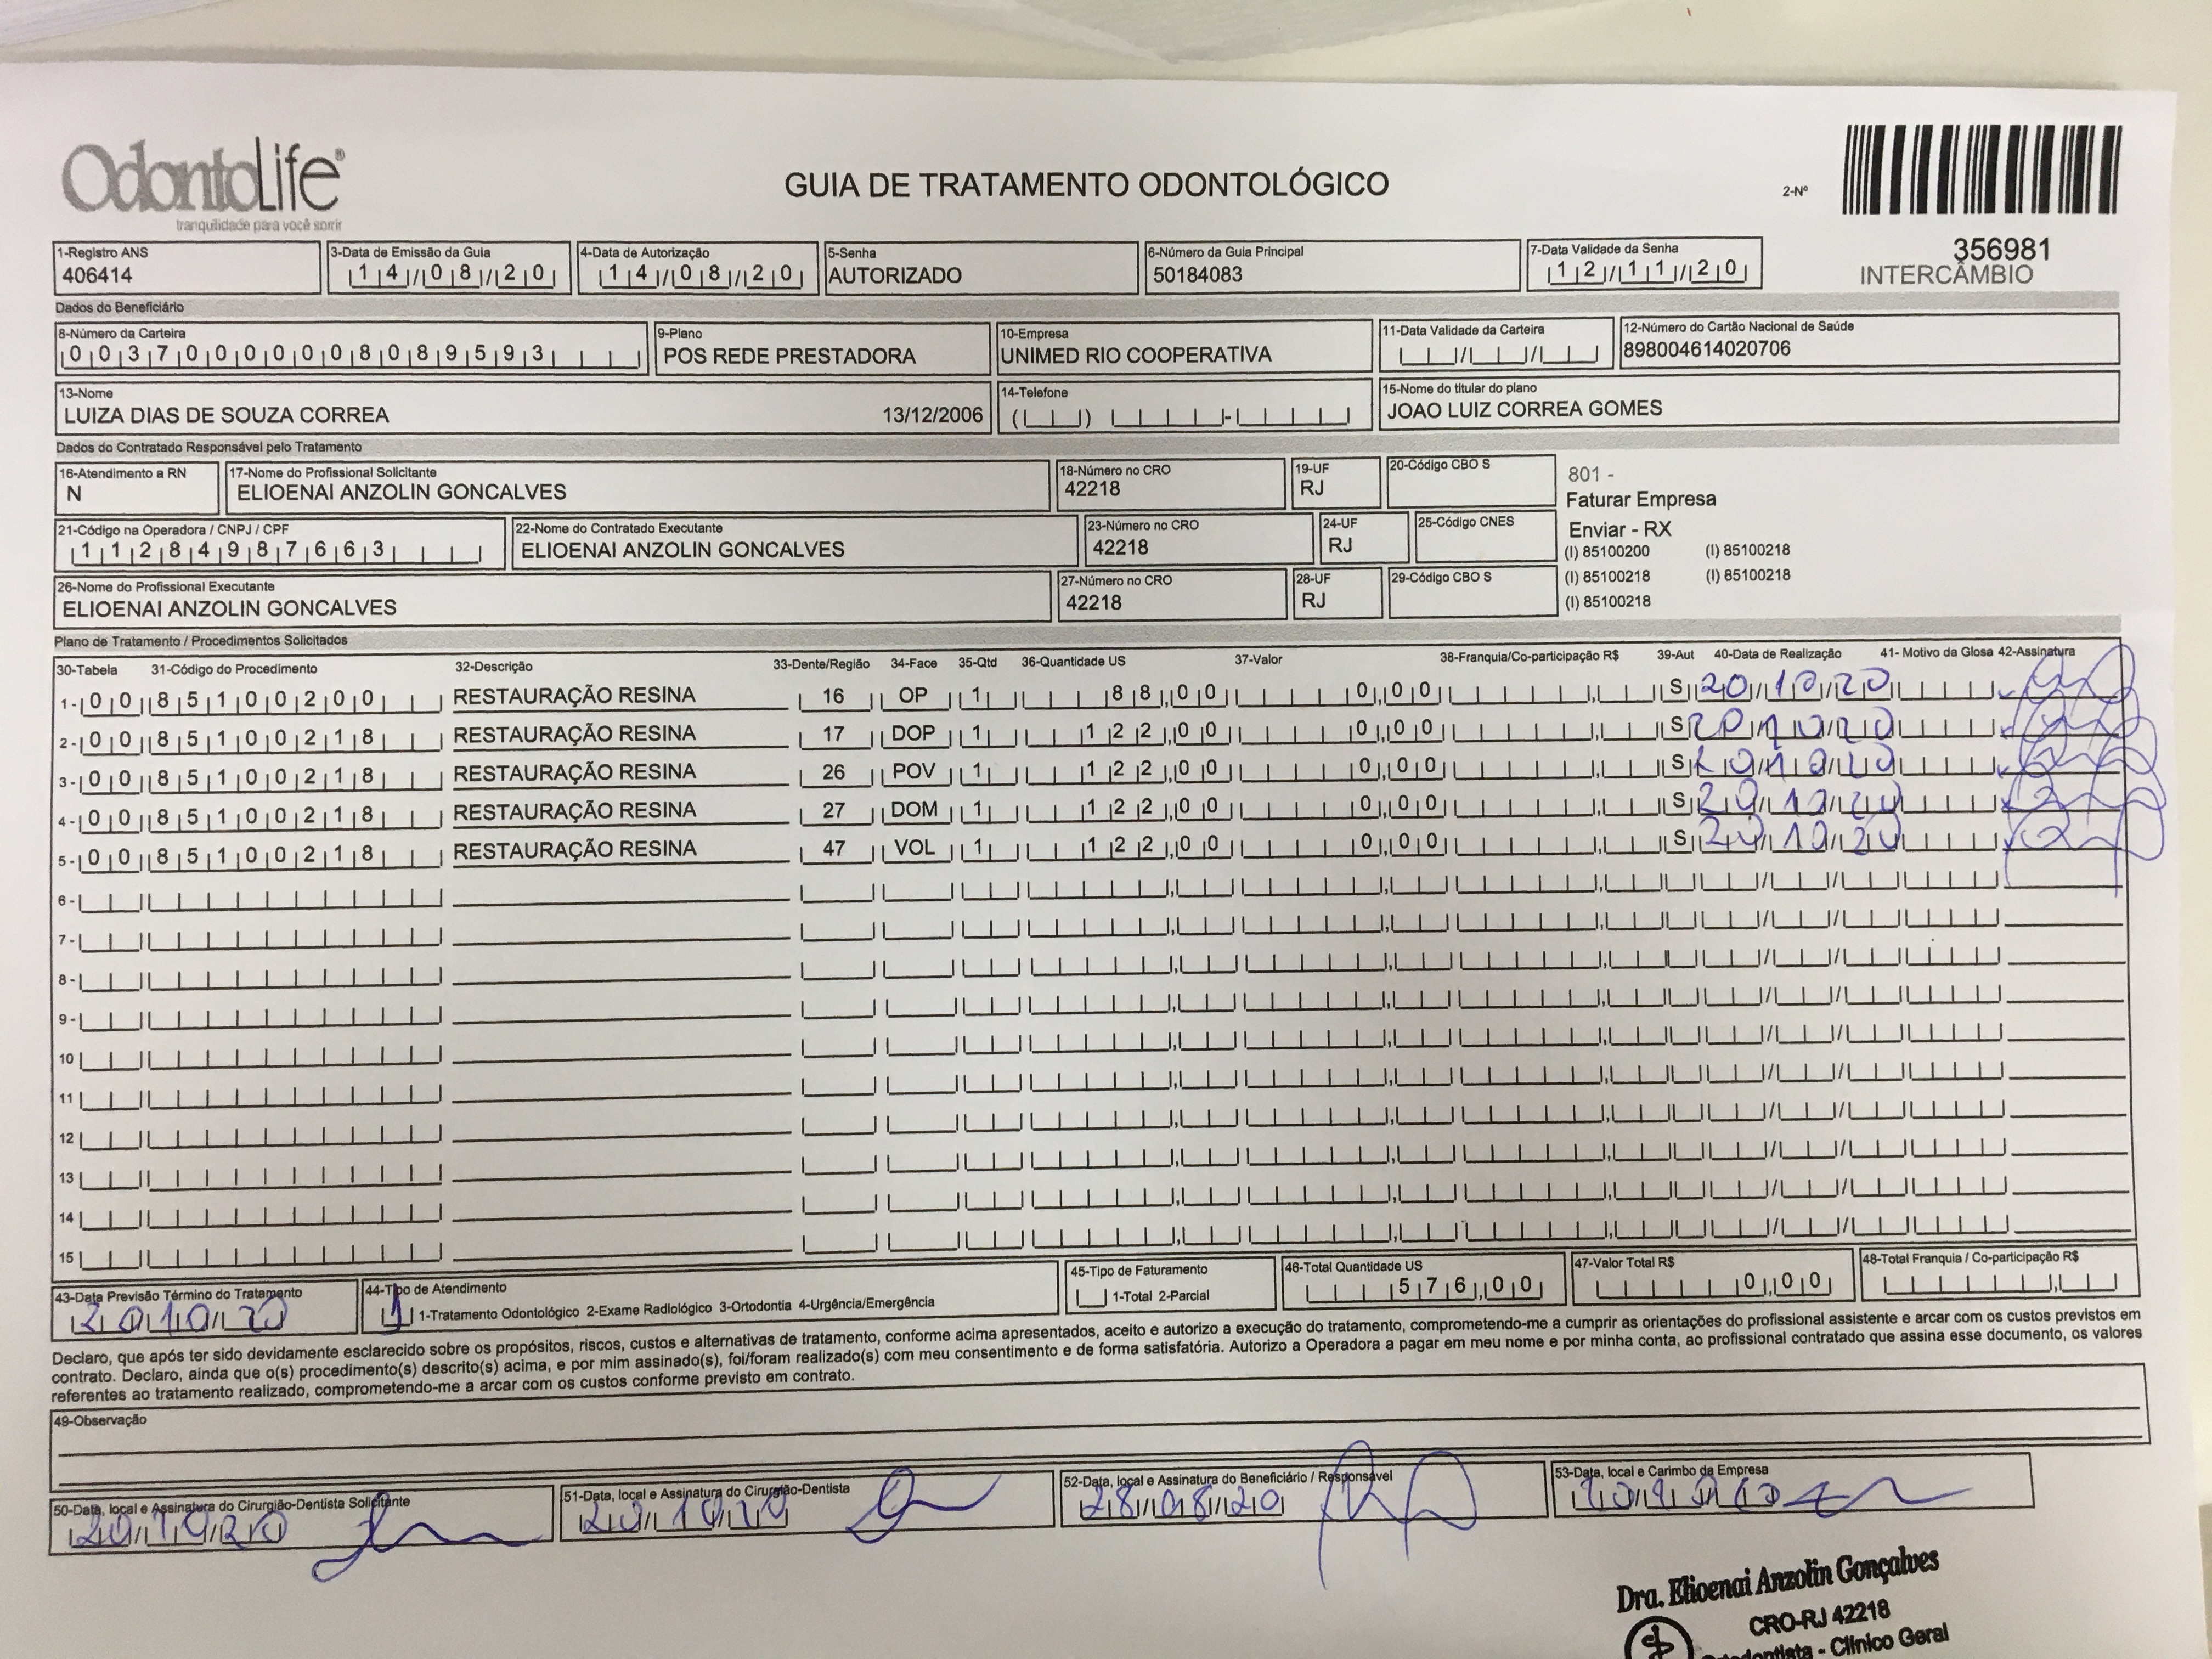 OdontoLife®
tranquilidade para você sorrir
GUIA DE TRATAMENTO ODONTOLÓGICO
2-Nº
356981
INTERCÂMBIO
1-Registro ANS
406414
3-Data de Emissão da Guia
14/08/20
4-Data de Autorização
14/08/20
5-Senha
AUTORIZADO
6-Número da Guia Principal
50184083
7-Data Validade da Senha
12/11/20
Dados do Beneficiário
8-Número da Carteira
00370000008089593
9-Plano
POS REDE PRESTADORA
10-Empresa
UNIMED RIO COOPERATIVA
11-Data Validade da Carteira
12-Número do Cartão Nacional de Saúde
898004614020706
13-Nome
LUIZA DIAS DE SOUZA CORREA 13/12/2006
14-Telefone
15-Nome do titular do plano
JOAO LUIZ CORREA GOMES
Dados do Contratado Responsável pelo Tratamento
16-Atendimento a RN
N
17-Nome do Profissional Solicitante
ELIOENAI ANZOLIN GONCALVES
18-Número no CRO
42218
19-UF
RJ
20-Código CBO S
801 -
Faturar Empresa
Enviar - RX
(I) 85100200 (I) 85100218
(I) 85100218 (I) 85100218
(I) 85100218
21-Código na Operadora / CNPJ / CPF
11284987663
22-Nome do Contratado Executante
ELIOENAI ANZOLIN GONCALVES
23-Número no CRO
42218
24-UF
RJ
25-Código CNES
26-Nome do Profissional Executante
ELIOENAI ANZOLIN GONCALVES
27-Número no CRO
42218
28-UF
RJ
29-Código CBO S
Plano de Tratamento / Procedimentos Solicitados
30-Tabela 31-Código do Procedimento 32-Descrição 33-Dente/Região 34-Face 35-Qtd 36-Quantidade US 37-Valor 38-Franquia/Co-participação R$ 39-Aut 40-Data de Realização 41- Motivo da Glosa 42-Assinatura
1- 00 85100200 RESTAURAÇÃO RESINA 16 OP 1 88,00 0,00 S 20/10/20
2- 00 85100218 RESTAURAÇÃO RESINA 17 DOP 1 122,00 0,00 S 20/10/20
3- 00 85100218 RESTAURAÇÃO RESINA 26 POV 1 122,00 0,00 S 20/10/20
4- 00 85100218 RESTAURAÇÃO RESINA 27 DOM 1 122,00 0,00 S 20/10/20
5- 00 85100218 RESTAURAÇÃO RESINA 47 VOL 1 122,00 0,00 S 20/10/20
6-
7-
8-
9-
10
11
12
13
14
15
43-Data Previsão Término do Tratamento
20/10/20
44-Tipo de Atendimento
1 1-Tratamento Odontológico 2-Exame Radiológico 3-Ortodontia 4-Urgência/Emergência
45-Tipo de Faturamento
1-Total 2-Parcial
46-Total Quantidade US
576,00
47-Valor Total R$
0,00
48-Total Franquia / Co-participação R$
Declaro, que após ter sido devidamente esclarecido sobre os propósitos, riscos, custos e alternativas de tratamento, conforme acima apresentados, aceito e autorizo a execução do tratamento, comprometendo-me a cumprir as orientações do profissional assistente e arcar com os custos previstos em
contrato. Declaro, ainda que o(s) procedimento(s) descrito(s) acima, e por mim assinado(s), foi/foram realizado(s) com meu consentimento e de forma satisfatória. Autorizo a Operadora a pagar em meu nome e por minha conta, ao profissional contratado que assina esse documento, os valores
referentes ao tratamento realizado, comprometendo-me a arcar com os custos conforme previsto em contrato.
49-Observação
50-Data, local e Assinatura do Cirurgião-Dentista Solicitante
20/10/20
51-Data, local e Assinatura do Cirurgião-Dentista
20/10/20
52-Data, local e Assinatura do Beneficiário / Responsável
28/08/20
53-Data, local e Carimbo da Empresa
20/10/20
Dra. Elioenai Anzolin Gonçalves
CRO-RJ 42218
- Clínico Geral